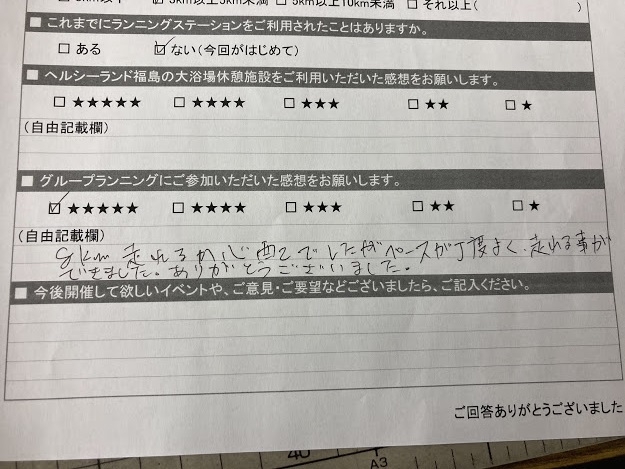 3km以上5km未満 □ 5km以上10km未満 □ それ以上( )
■ これまでにランニングステーションをご利用されたことはありますか。
□ ある ☑ ない(今回がはじめて)
■ ヘルシーランド福島の大浴場休憩施設をご利用いただいた感想をお願いします。
□ ★★★★★ □ ★★★★ □ ★★★ □ ★★ □ ★
(自由記載欄)
■ グループランニングにご参加いただいた感想をお願いします。
☑ ★★★★★ □ ★★★★ □ ★★★ □ ★★ □ ★
(自由記載欄)
km 走れるか心配でしたがペースが丁度よく、走れる事が
できました。ありがとうございました。
■ 今後開催して欲しいイベントや、ご意見・ご要望などございましたら、ご記入ください。
ご回答ありがとうございました
40
A3